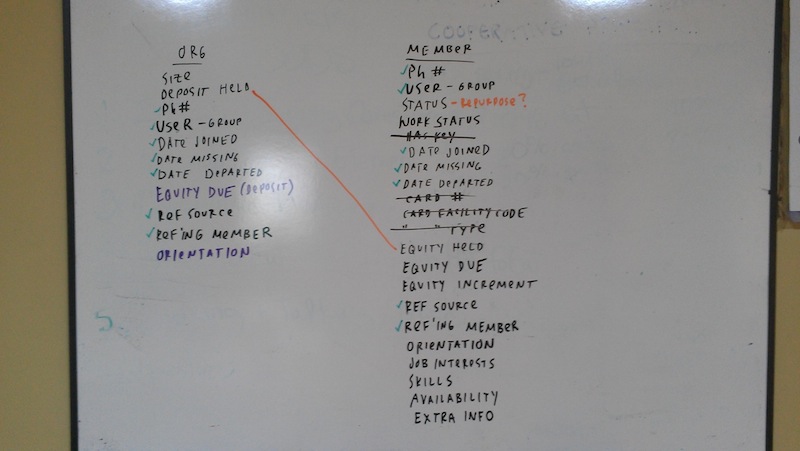 COOPERATIVE
ORG
SIZE
DEPOSIT HELD
✓PH#
✓USER-GROUP
✓DATE JOINED
✓DATE MISSING
✓DATE DEPARTED
EQUITY DUE (DEPOSIT)
✓REF SOURCE
✓REF'ING MEMBER
ORIENTATION
MEMBER
✓PH #
✓USER-GROUP
STATUS - REPURPOSE?
WORK STATUS
HAS KEY
✓DATE JOINED
✓DATE MISSING
✓DATE DEPARTED
CARD #
CARD FACILITY CODE
" " TYPE
EQUITY HELD
EQUITY DUE
EQUITY INCREMENT
✓REF SOURCE
✓REF'ING MEMBER
ORIENTATION
JOB INTERESTS
SKILLS
AVAILABILITY
EXTRA INFO